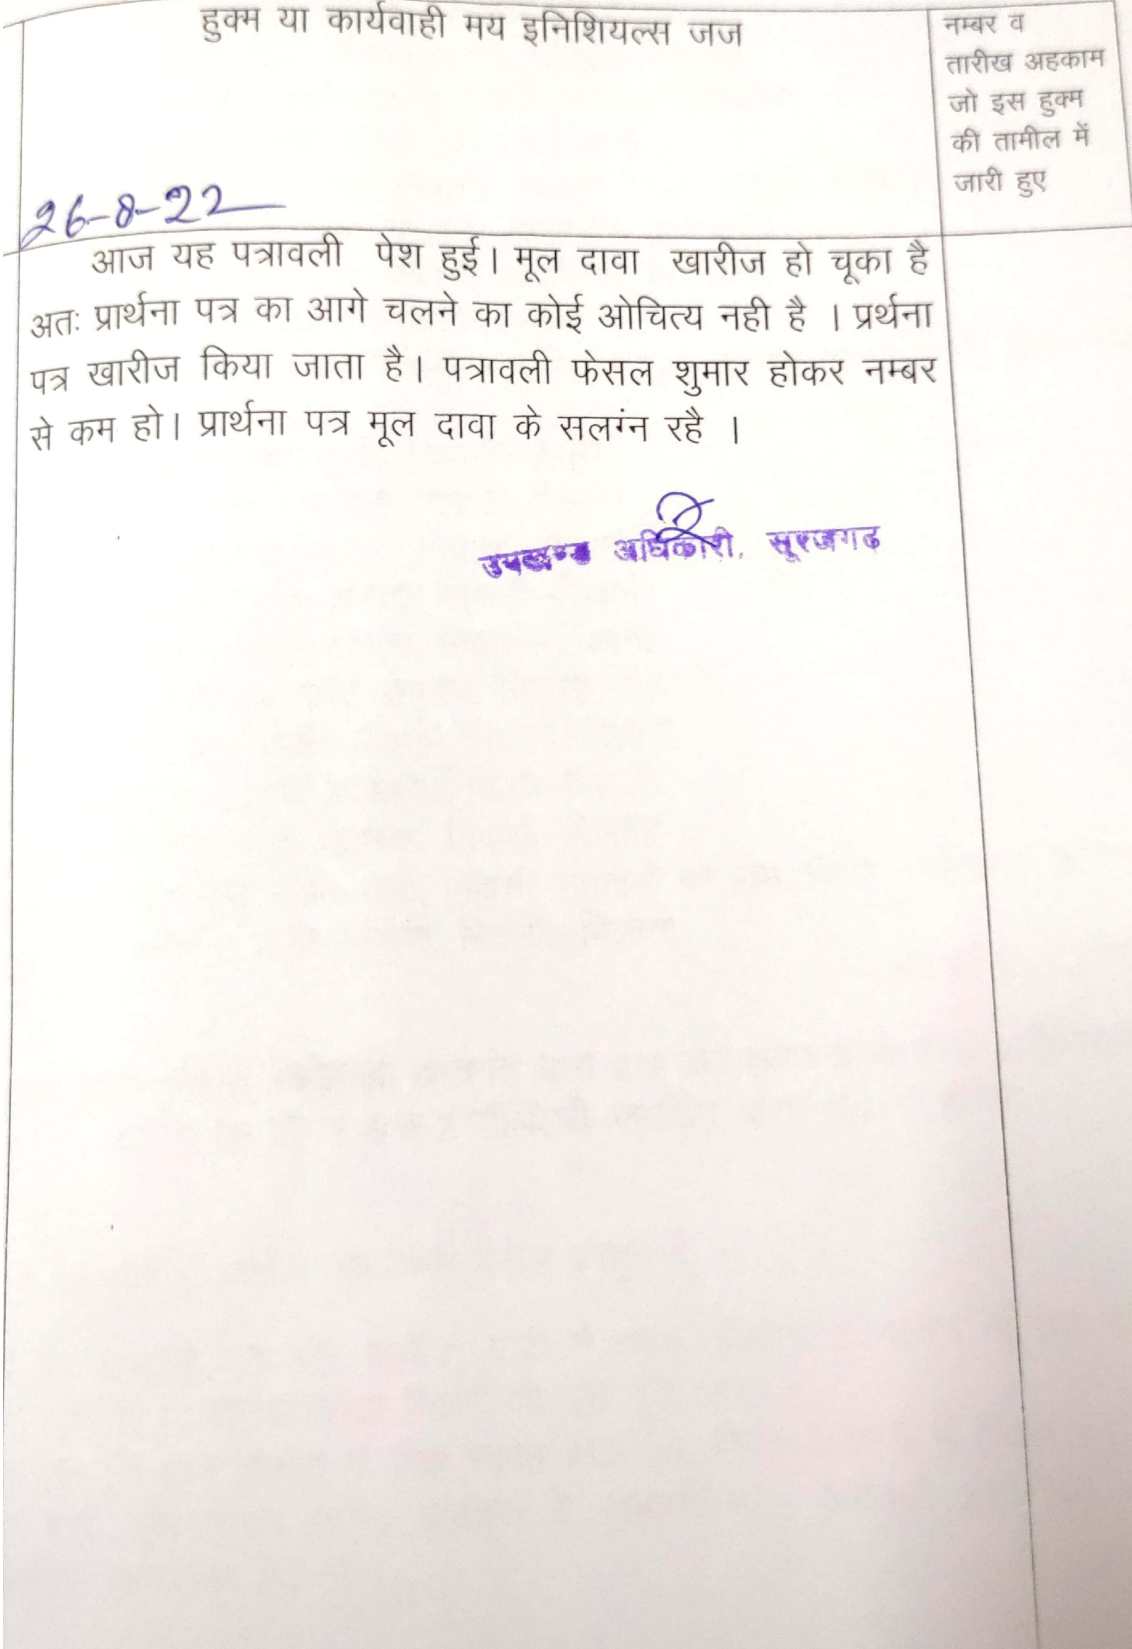 हुक्म या कार्यवाही मय इनिशियल्स जज
नम्बर व
तारीख अहकाम
जो इस हुक्म
की तामील में
जारी हुए
26-8-22
आज यह पत्रावली पेश हुई। मूल दावा खारीज हो चूका है
अतः प्रार्थना पत्र का आगे चलने का कोई ओचित्य नही है । प्रर्थना
पत्र खारीज किया जाता है। पत्रावली फेसल शुमार होकर नम्बर
से कम हो। प्रार्थना पत्र मूल दावा के सलग्ंन रहै ।
उपखण्ड अधिकारी, सूरजगढ